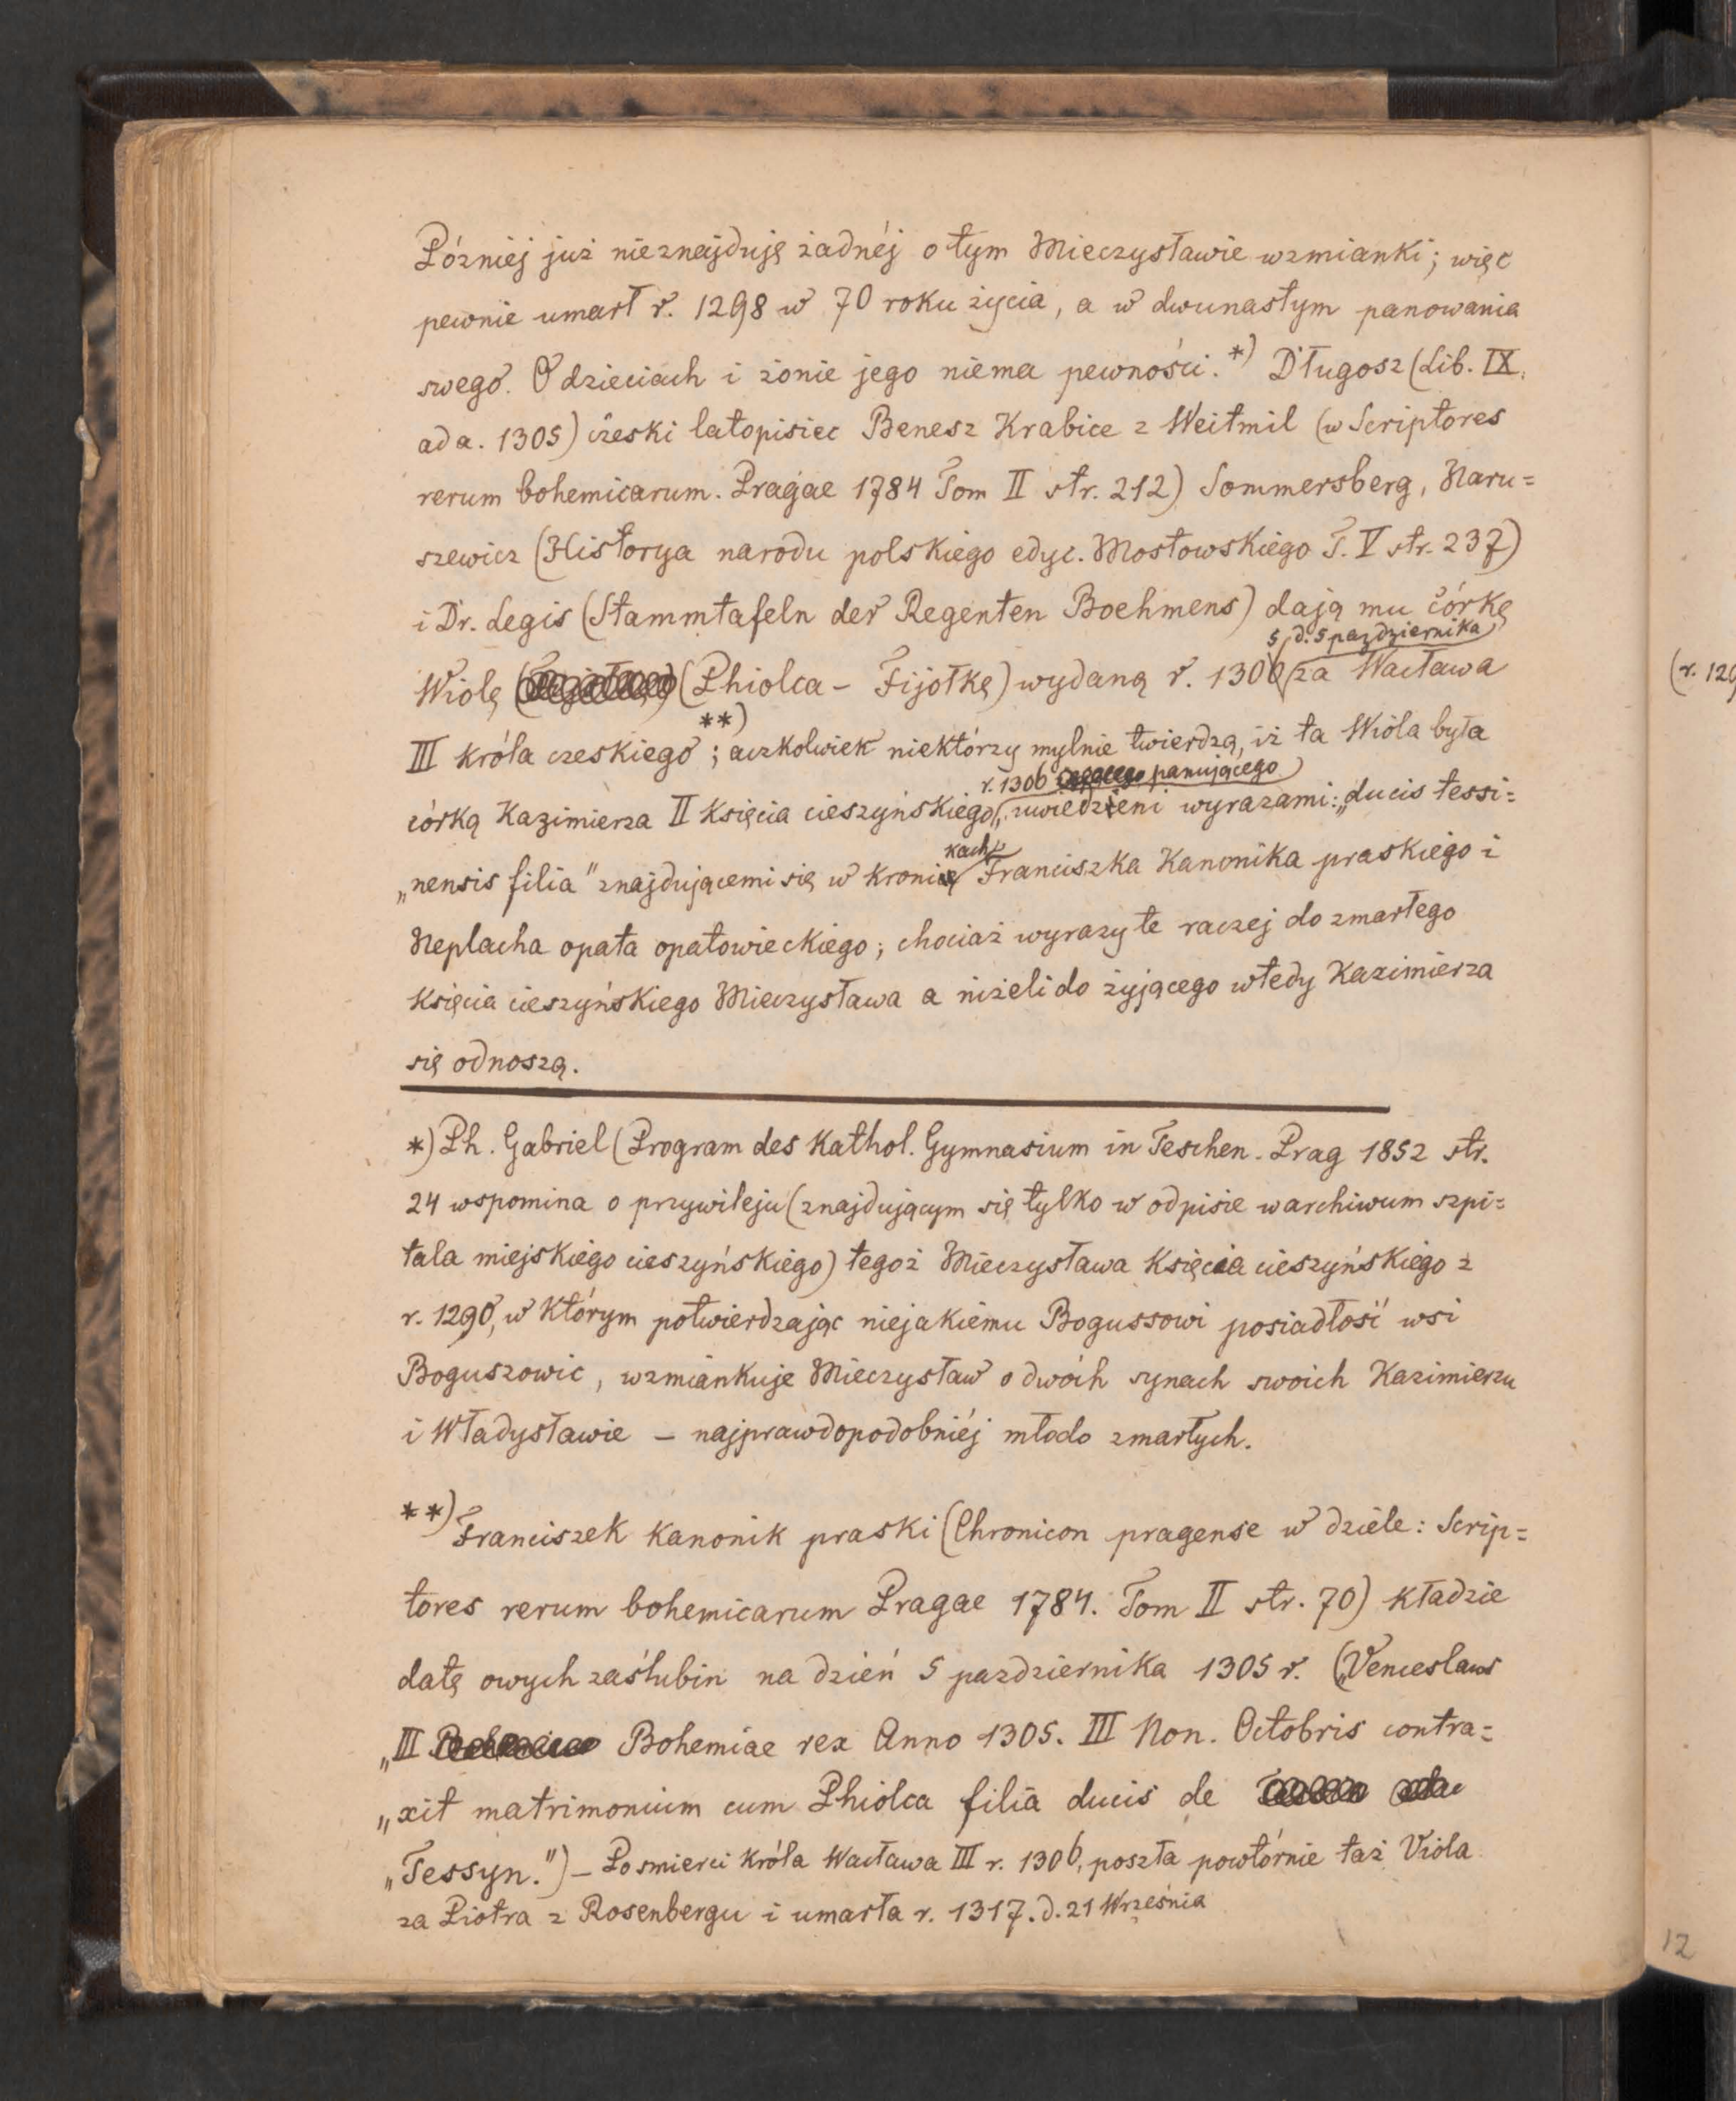 Później już nieznajduję żadnéj o tym Mieczysławie wzmianki; więc
pewnie umarł r. 1298 w 70 roku życia, a w dwunastym panowania
swego. O dzieciach i żonie jego niema pewności.*) Długosz (Lib. IX.
ad a. 1305) czeski latopisiec Benesz Krabice z Weitmil (w Scriptores
rerum bohemicarum. Pragae 1784 Tom II str. 212) Sommersberg, Naru=
szewicz (Historya narodu polskiego edyc. Mostowskiego T. V str. 237)
i Dr. Legis (Stammtafeln der Regenten Boehmens) dają mu córkę
5 d. 5 października
Wiolę (Phiolca – Fijołkę) wydaną r. 1306 za Wacława
III króla czeskiego **); aczkolwiek niektórzy mylnie twierdzą, iż ta Wiola była
r. 1306 panującego
córką Kazimierza II Księcia cieszyńskiego, uwiedzieni wyrazami: „ducis tessi=
kach
„nensis filia" znajdującemi się w kronice Franciszka Kanonika praskiego i
Neplacha opata opatowieckiego; chociaż wyrazy te raczej do zmarłego
Księcia cieszyńskiego Mieczysława a niżeli do żyjącego wtedy Kazimierza
się odnoszą.
*) Ph. Gabriel (Program des Kathol. Gymnasium in Teschen. Prag 1852 str.
24 wspomina o przywileju (znajdującym się tylko w odpisie w archiwum szpi=
tala miejskiego cieszyńskiego) tegoż Mieczysława Księcia cieszyńskiego z
r. 1290, w którym potwierdzając niejakiemu Bogussowi posiadłość wsi
Boguszowic, wzmiankuje Mieczysław o dwóch synach swoich Kazimierzu
i Władysławie – najprawdopodobniéj młodo zmarłych.
**) Franciszek Kanonik praski (Chronicon pragense w dziele: Scrip=
tores rerum bohemicarum Pragae 1784. Tom II str. 70) kładzie
datę owych zaślubin na dzień 5 pazdziernika 1305 r. („Venceslaus
„III Bohemiae rex Anno 1305. III Non. Octobris contra=
„xit matrimonium cum Phiolca filia ducis de
„Tessyn.") – Po smierci Króla Wacława III r. 1306, poszła powtórnie taż Viola
za Piotra z Rosenbergu i umarła r. 1317. d. 21 Września
(r. 129
12